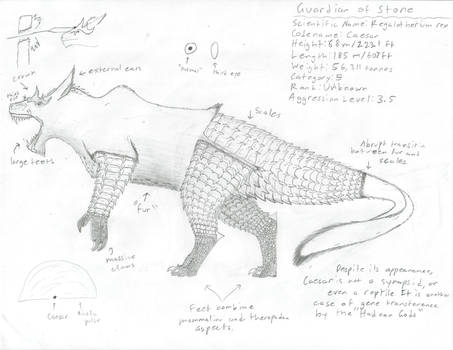 Guardian of Stone
Scientific Name: Regalotherium rex
Codename: Caesar
Height: 68m/223.1 ft
Length: 185 m/607ft
Weight: 56,311 tonnes
Category: 5
Rank: Unknown
Aggression Level: 3.5
crown
external ears
"normal"
third eye
large teeth
Scales
Abrupt transition
between fur and
scales
"fur"
massive
claws
Caesar
pulse
Feet combine
mammalian and theropodan
aspects.
Despite its appearance,
Caesar is not a synapsid, or
even a reptile. It is another
case of gene transference
by the "Hadean Gods"